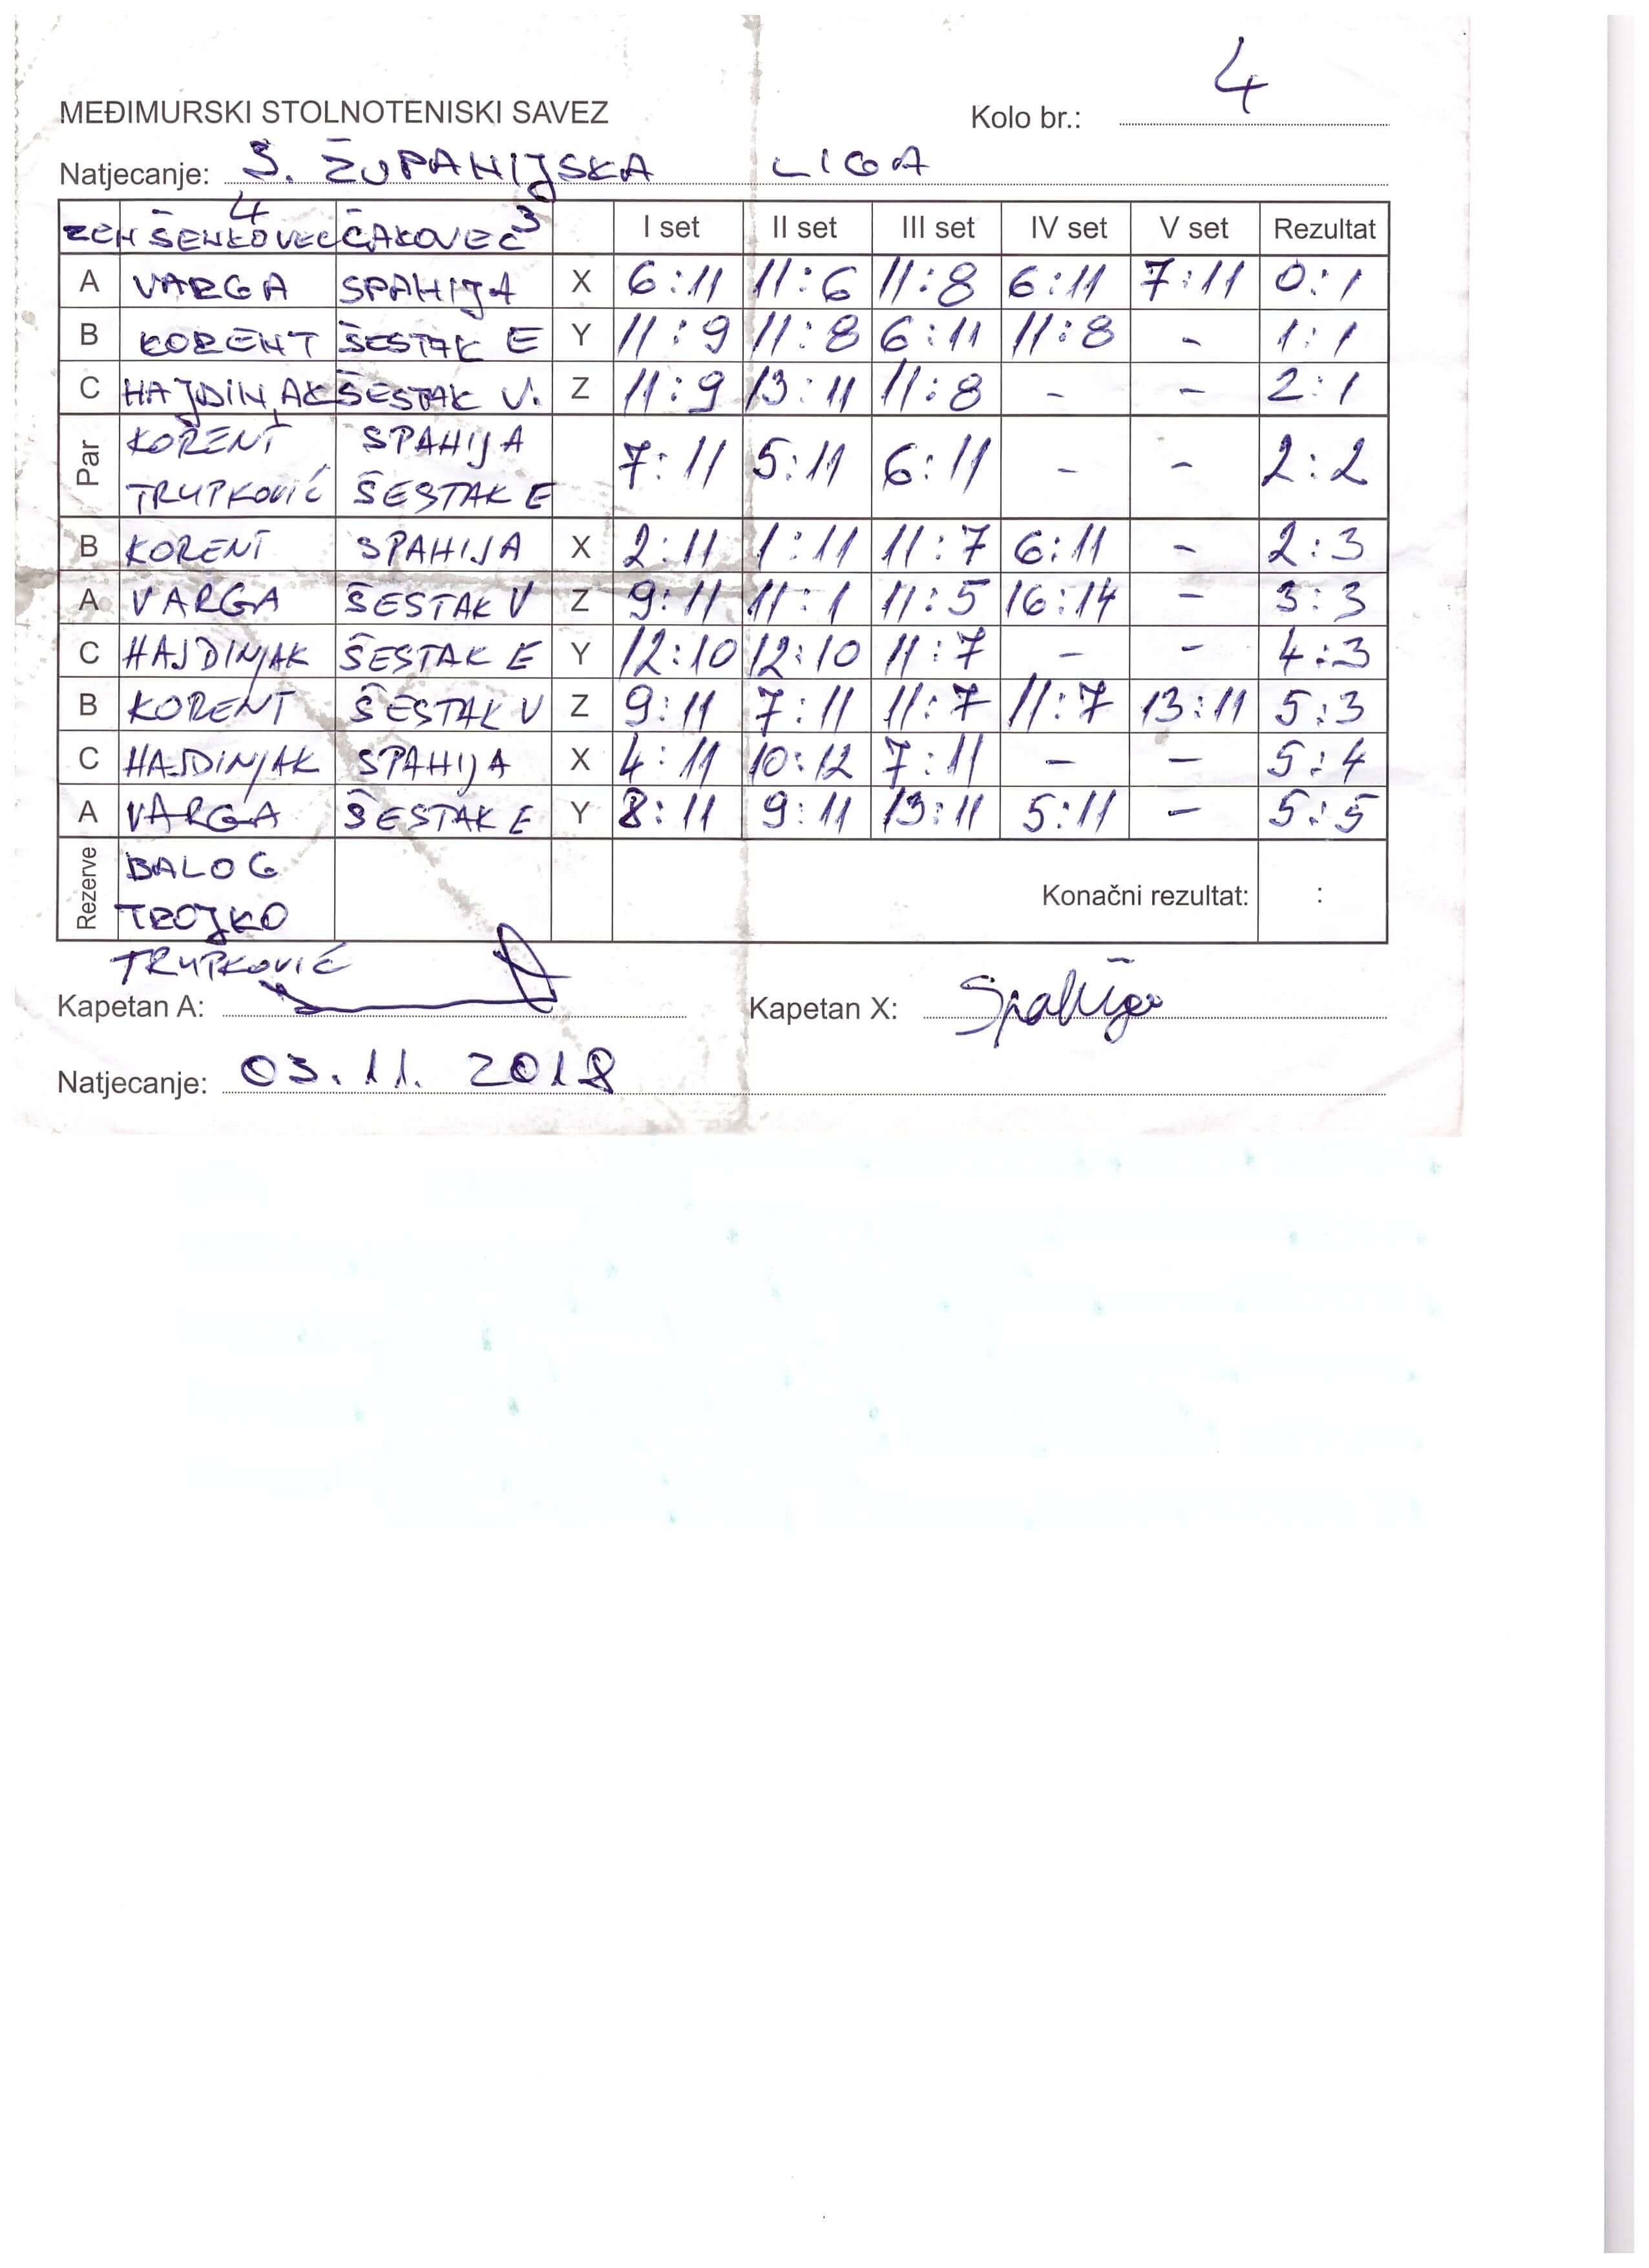 MEĐIMURSKI STOLNOTENISKI SAVEZ Kolo br.: 4
Natjecanje: 3. ŽUPANIJSKA LIGA
ZEN ŠENKOVEC 4 ČAKOVEC 3 I set II set III set IV set V set Rezultat
A VARGA SPAHIJA X 6:11 11:6 11:8 6:11 7:11 0:1
B KORENT ŠESTAK E Y 11:9 11:8 6:11 11:8 - 1:1
C HAJDINJAK ŠESTAK V. Z 11:9 13:11 11:8 - - 2:1
Par KORENT SPAHIJA 7:11 5:11 6:11 - - 2:2
TRUPKOVIĆ ŠESTAK E
B KORENT SPAHIJA X 2:11 1:11 11:7 6:11 - 2:3
A VARGA ŠESTAK V Z 9:11 11:1 11:5 16:14 - 3:3
C HAJDINJAK ŠESTAK E Y 12:10 12:10 11:7 - - 4:3
B KORENT ŠESTAK V Z 9:11 7:11 11:7 11:7 13:11 5:3
C HAJDINJAK SPAHIJA X 4:11 10:12 7:11 - - 5:4
A VARGA ŠESTAK E Y 8:11 9:11 13:11 5:11 - 5:5
Rezerve BALOG Konačni rezultat: :
TROJKO
TRUPKOVIĆ
Kapetan A: Kapetan X: Spahija
Natjecanje: 03.11. 2018